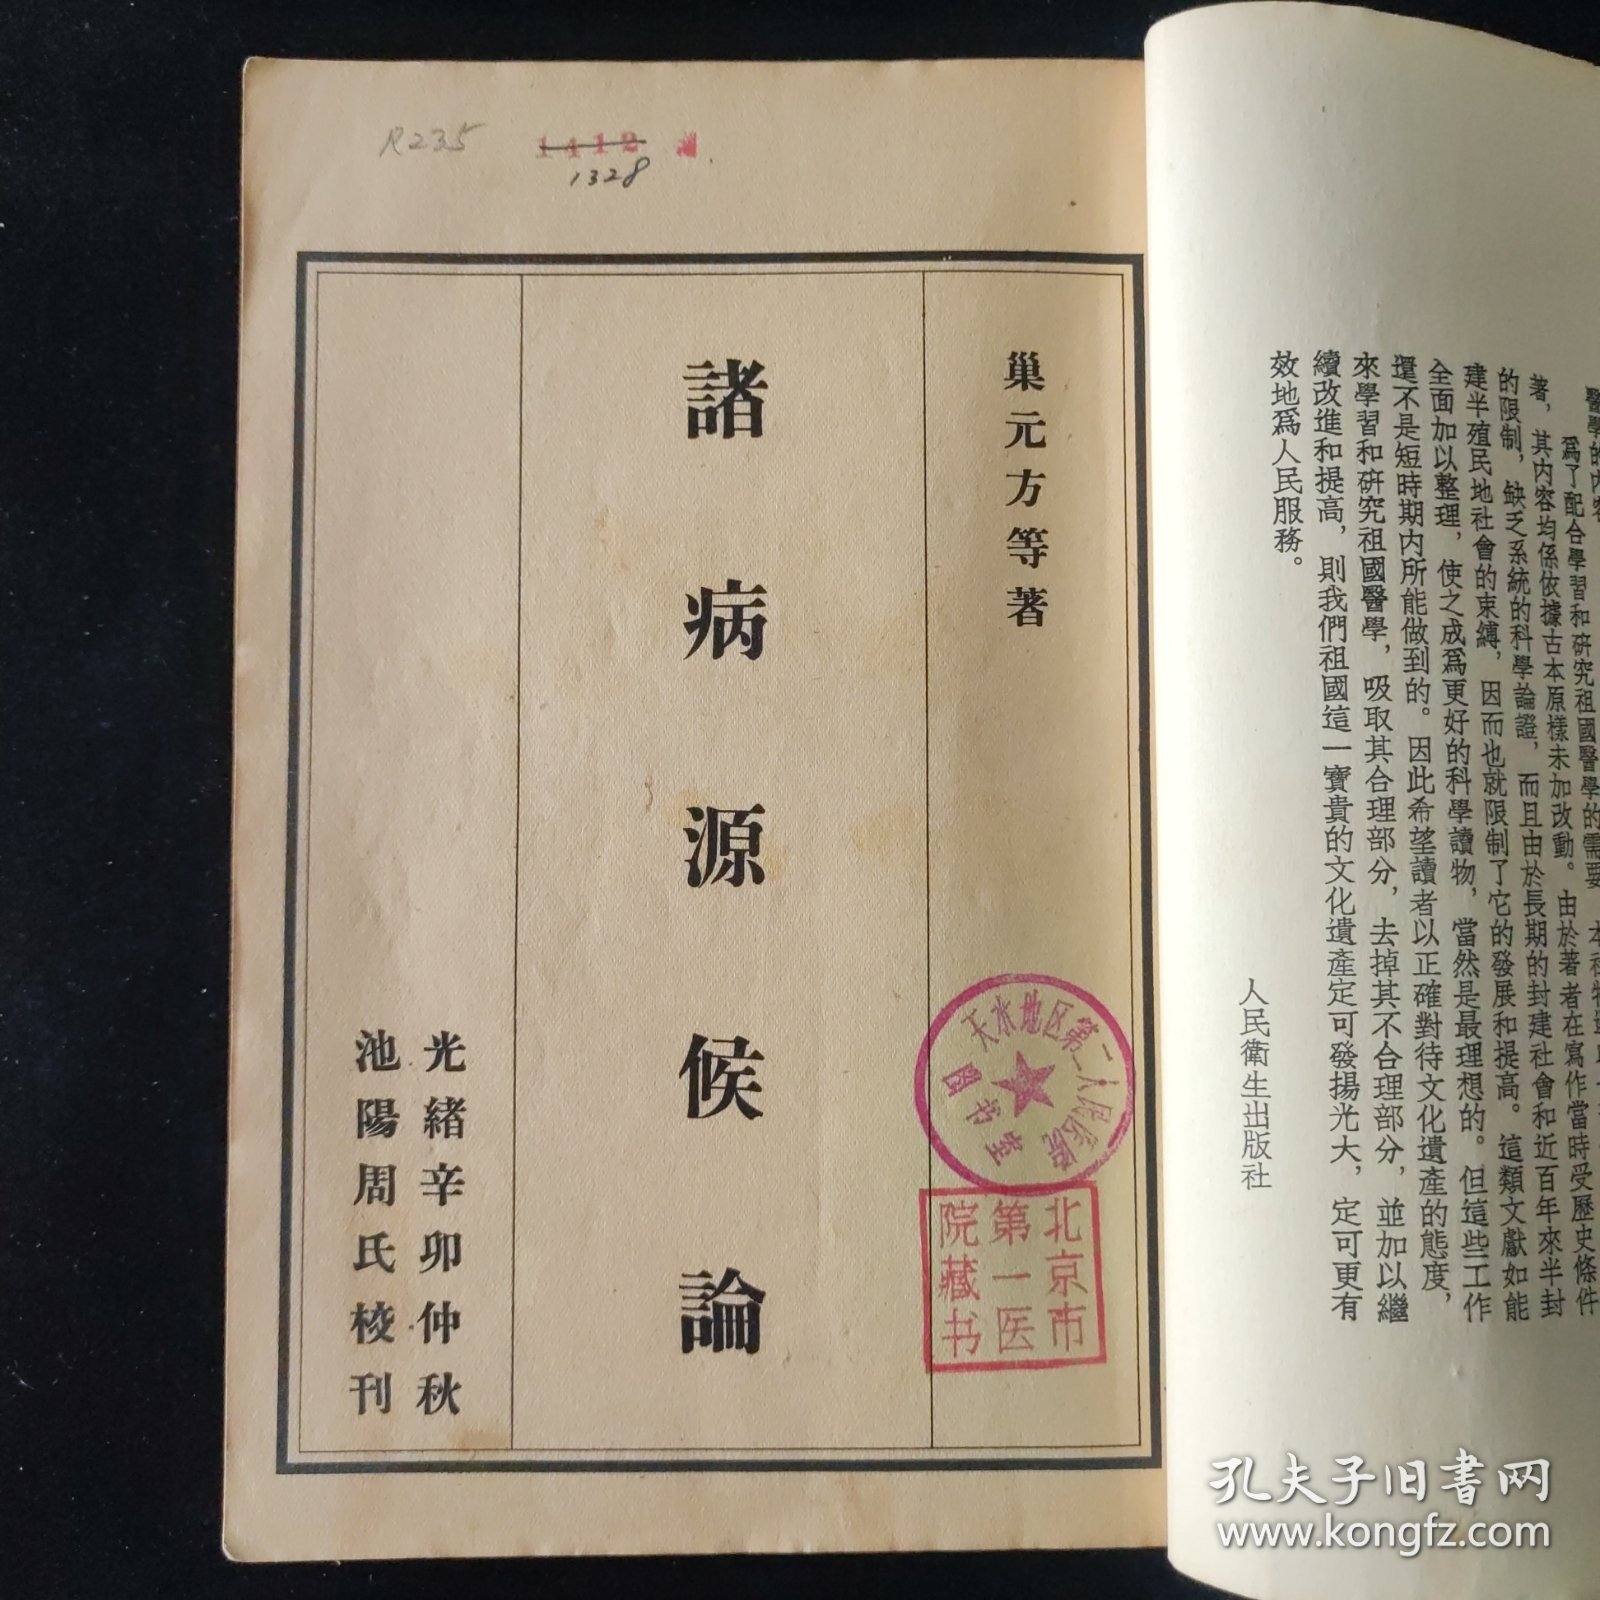 醫學的內容
爲了配合學習和研究祖國醫學的需要
著，其內容均係依據古本原樣未加改動。由於著者在寫作當時受歷史條件
的限制，缺乏系統的科學論證，而且由於長期的封建社會和近百年來半封
建半殖民地社會的束縛，因而也就限制了它的發展和提高。這類文獻如能
全面加以整理，使之成爲更好的科學讀物，當然是最理想的。但這些工作
還不是短時期內所能做到的。因此希望讀者以正確對待文化遺產的態度，
來學習和研究祖國醫學，吸取其合理部分，去掉其不合理部分，並加以繼
續改進和提高，則我們祖國這一寶貴的文化遺產定可發揚光大，定可更有
效地爲人民服務。
人民衛生出版社
R235
1412
1328
巢元方等著
諸病源候論
光緒辛卯仲秋
池陽周氏校刊
天水地区第二人民医院
图书室
北京市
第一医
院藏书
孔夫子旧书网
www.kongfz.com